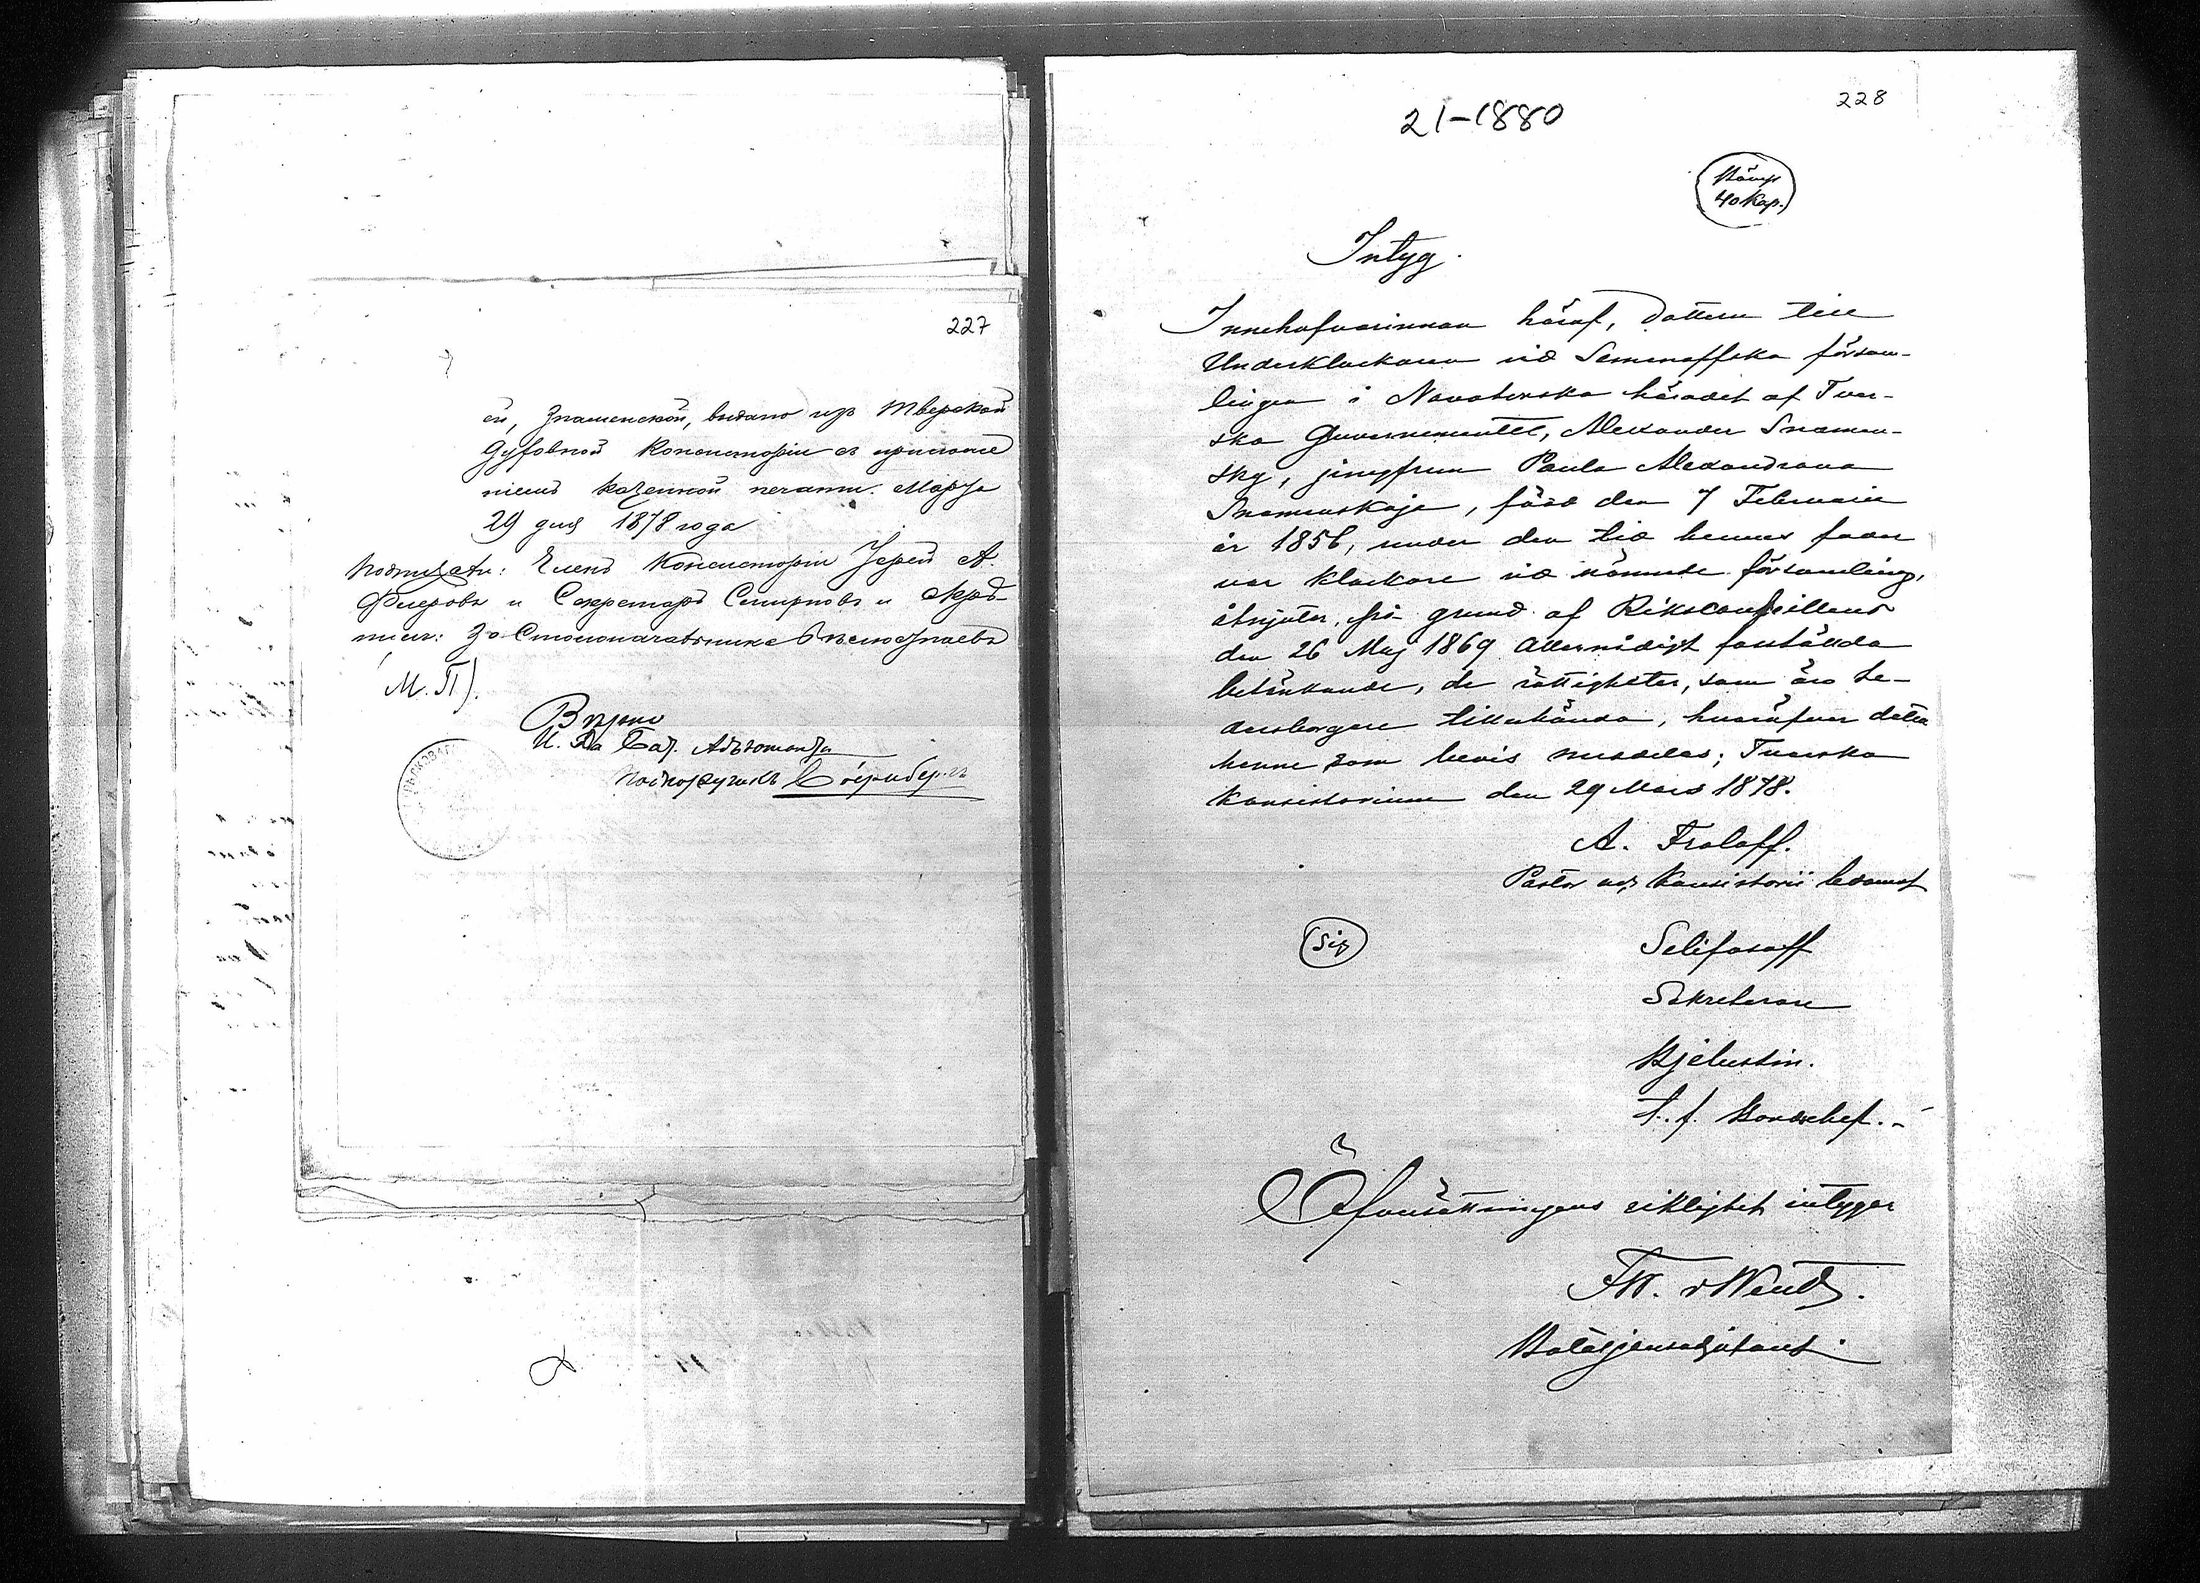 227
ей, Знаменской, выдано изъ Тверской
Духовной Консисторіи съ приложе
ніемъ казенной печати. Марта
29 дня 1878 года
Подписали: Членъ Консисторіи Іерей А.
и Секретарь и Скрѣ-
пилъ: За Столоначальника
(М.П.)
Вѣрно
И. Да Бат. Адъютанта
Подпоручикъ
21-1880
228
Stämp
40 Kop.
Intyg.
Innehafvarinnan häraf, dottern till
Underklockaren vid Semenoffska försam-
lingen i Novotorska häradet af Tver-
ska Guvernementet, Alexander Snamen-
sky, jungfrun Paula Alexandrovna
Snamenskaja, född den 7 Februari
år 1856, under den tid hennes fader
var klockare vid nämnde församling,
åtnjuter, på grund af Rikskonseillens
den 26 Maj 1869 Allernådigst fastställda
betänkande, de rättigheter, som äro he-
dersborgare tillerkända, hvaröfver detta
henne som bevis meddelas; Tverska
Konsistorium den 29 Mars 1878.
A. Froloff.
Pastor och Konsistorii ledamot
Sig
Selifonoff
Sekreterare
Bjelustin.
t. f. Bordschef.
Öfversättningens riktighet intygar
v Wendt.
Bataljonsadjutant.